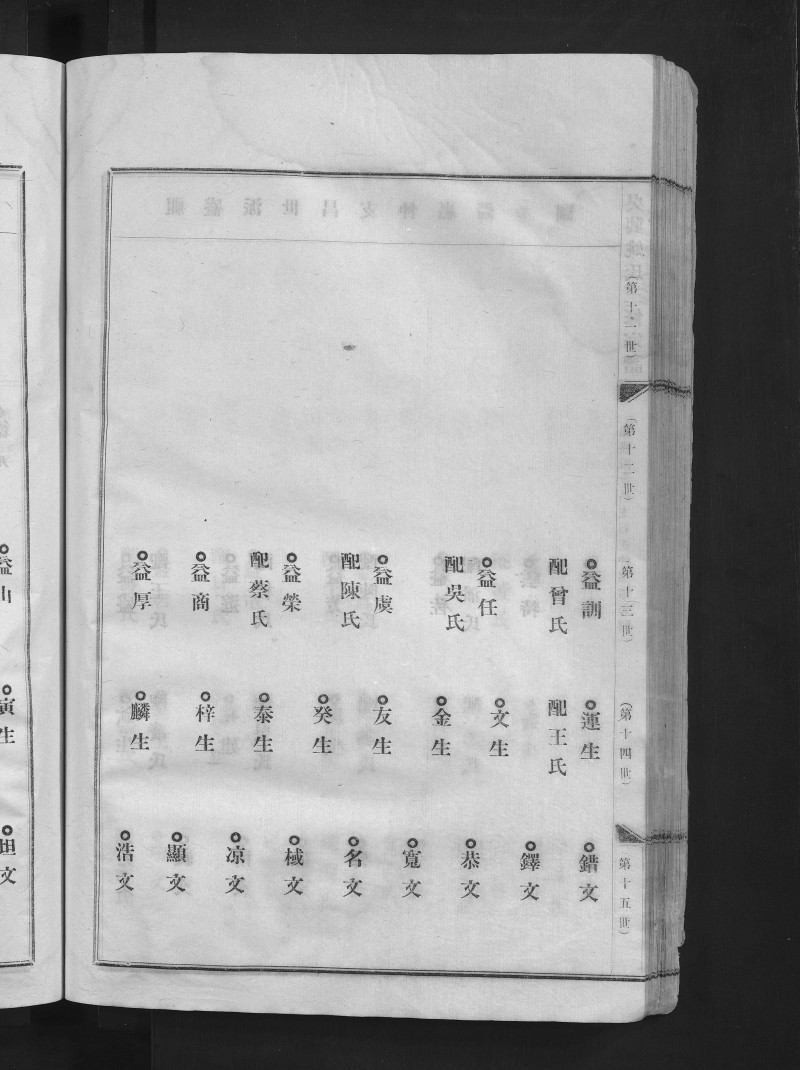 (第十二世)
(第十二世)
(第十三世)
(第十四世)
(第十五世)
益訓
配曾氏
益任
配吳氏
益虞
配陳氏
益榮
配蔡氏
益商
益厚
運生
配王氏
文生
金生
友生
癸生
泰生
梓生
麟生
錯文
鐸文
恭文
寬文
名文
棫文
凉文
顯文
浩文
益山
寅生
坦文